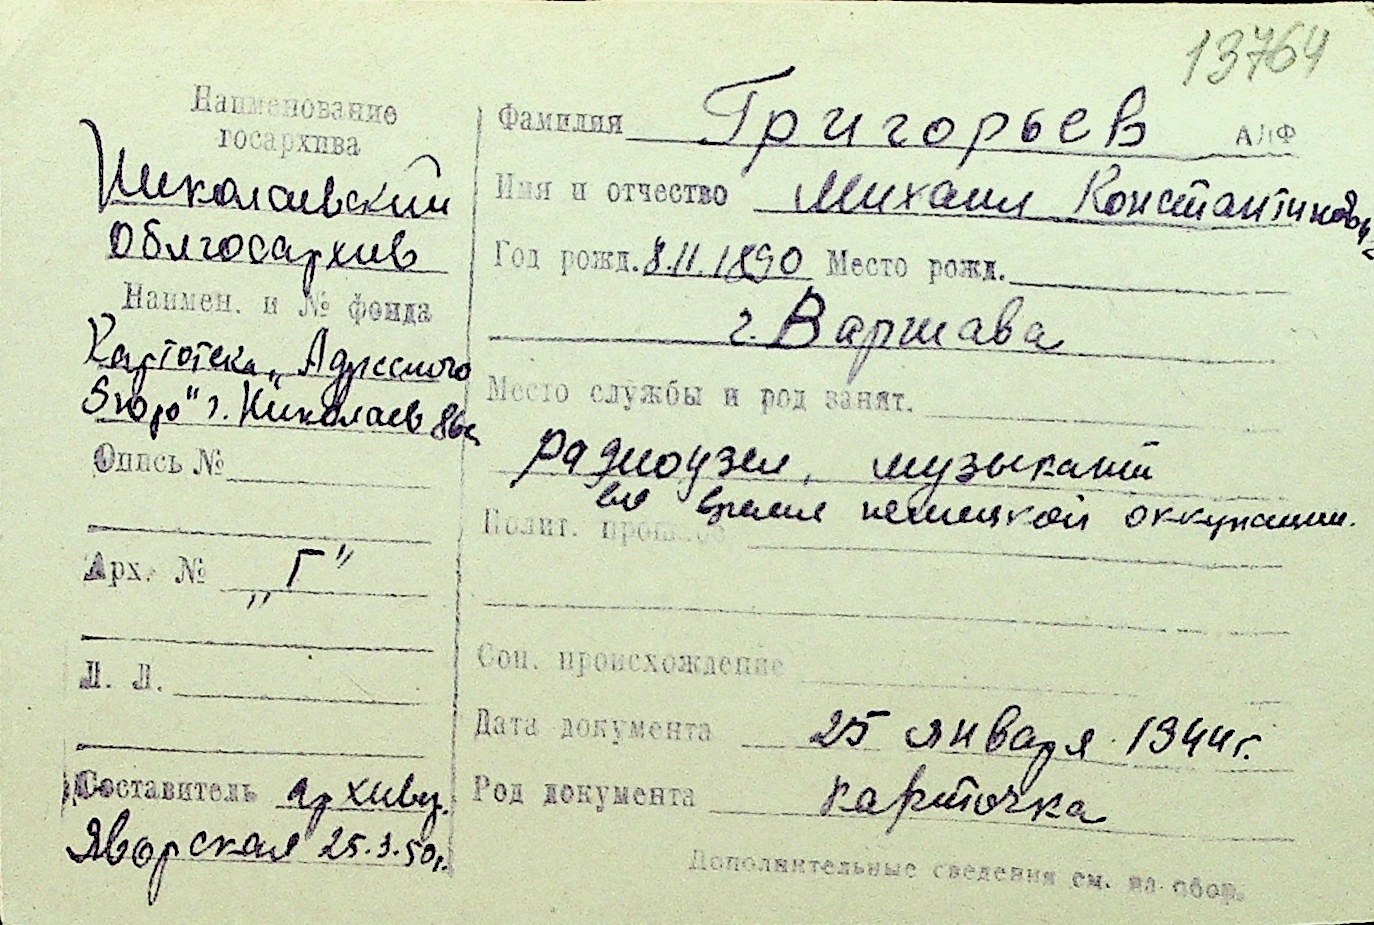 13764
Наименование
госархива
Николаевский
Облгосархив
Наимен. и № фонда
Картотека „Адресного
бюро" г. Николаев
Опись №
Арх. № „Г"
Л. Л.
Составитель архив
Яворская 25.3.50г.
Фамилия Григорьев
Имя и отчество Михаил Константинович
Год рожд. 8.11.1890 Место рожд.
г. Варшава
Место службы и род занят.
радиоузел, музыкант
во время немецкой оккупации.
Полит. прошлое
Соц. происхождение
Дата документа 25 января 1944г.
Род документа карточка
Дополнительные сведения см. на обор.